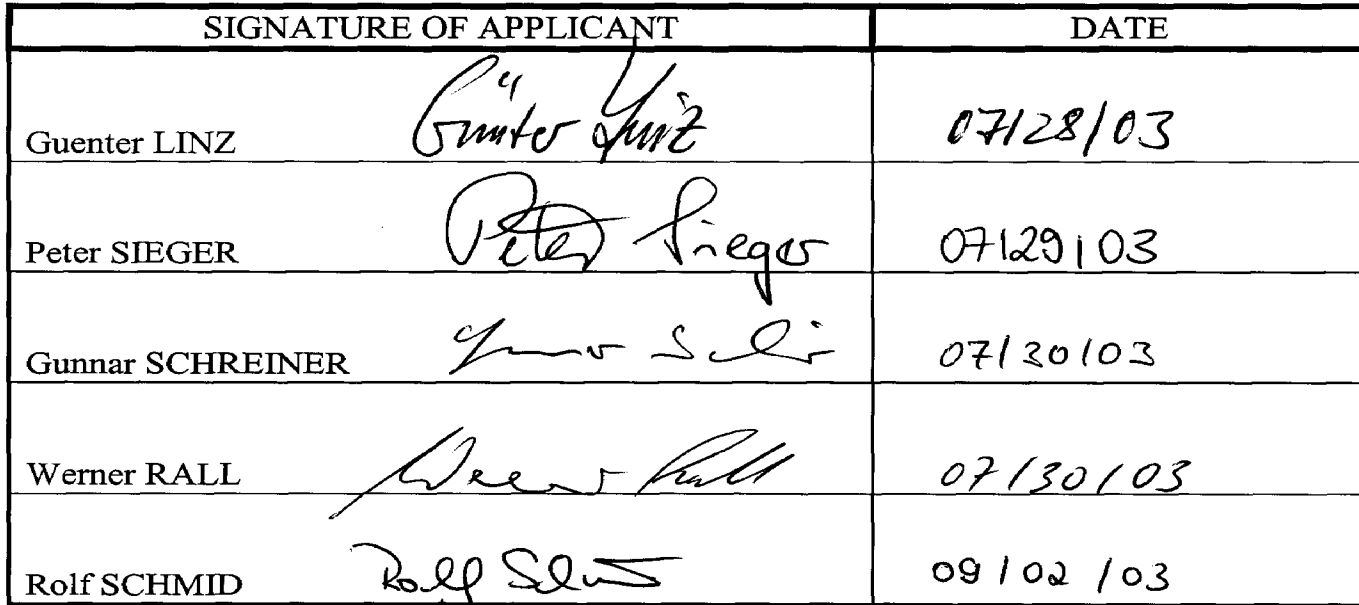 SIGNATURE OF APPLICANT DATE
Guenter LINZ Günter Linz 07/28/03
Peter SIEGER Peter Sieger 07/29/03
Gunnar SCHREINER 07/30/03
Werner RALL Werner Rall 07/30/03
Rolf SCHMID Rolf 09/02/03